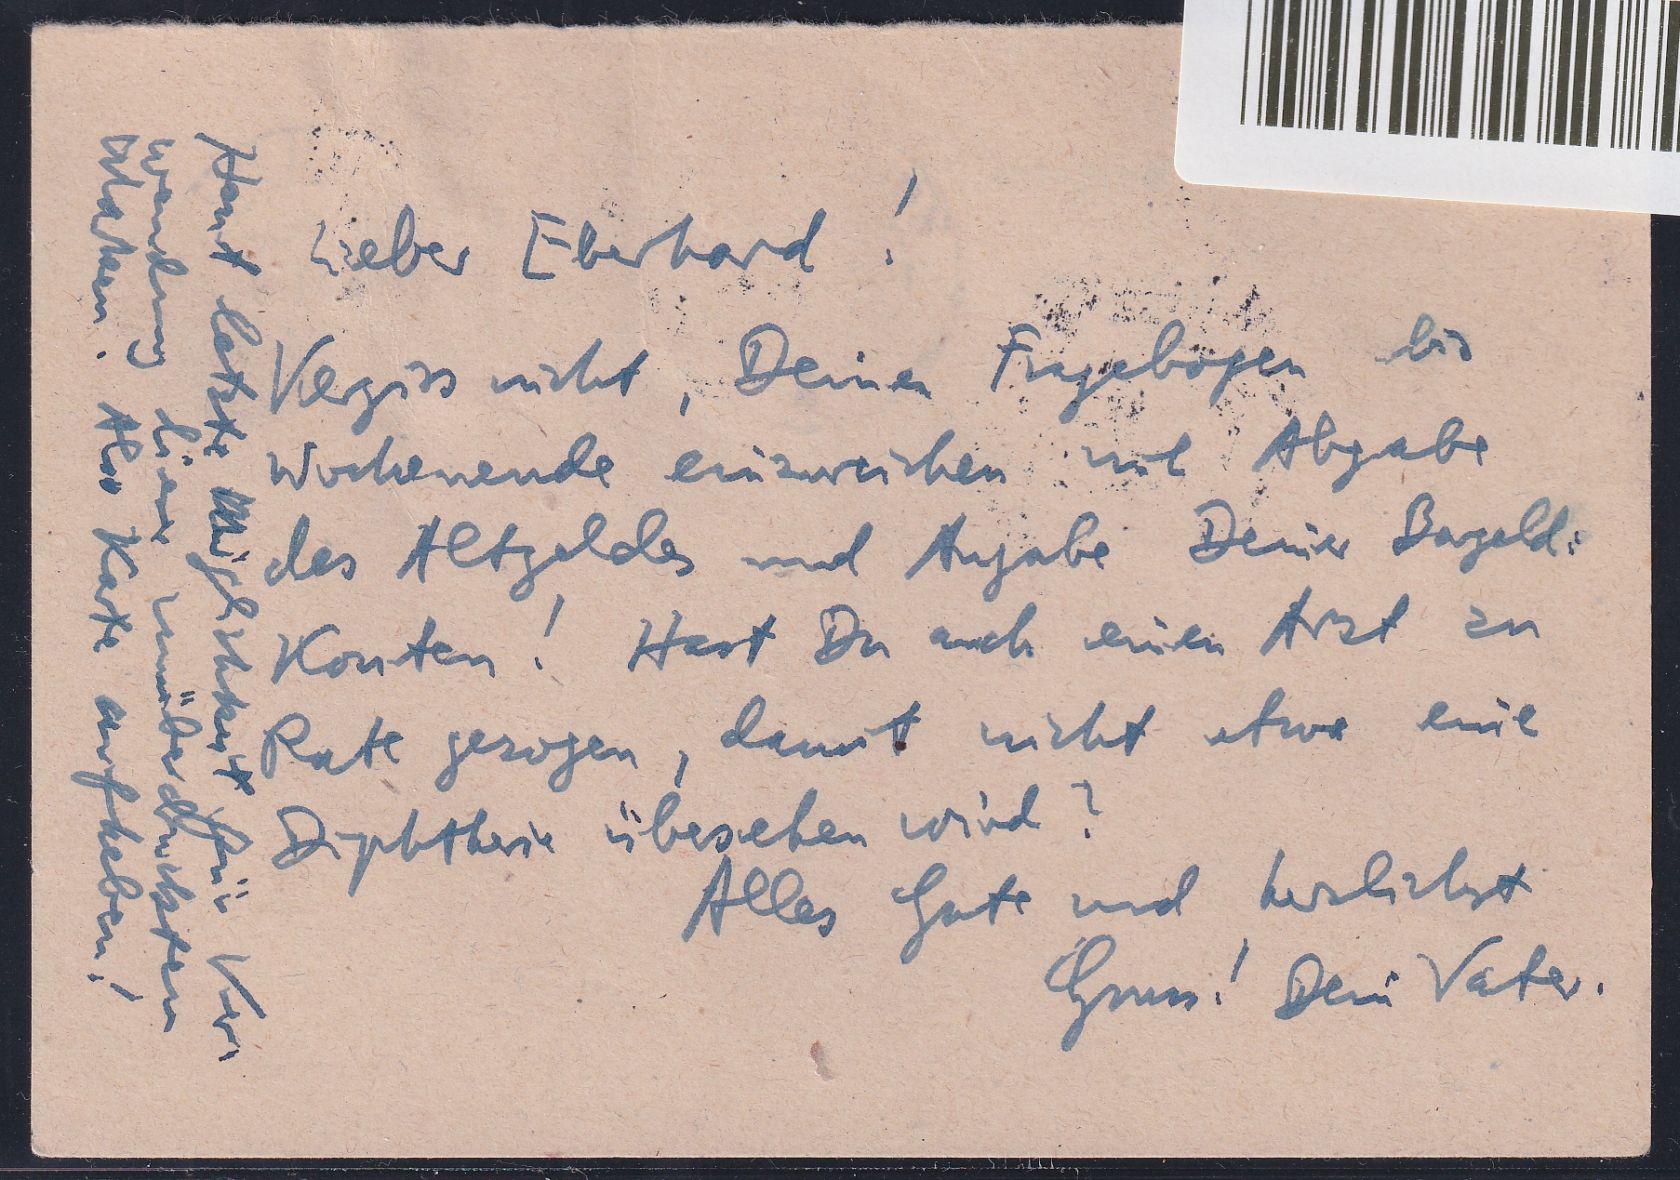 Lieber Eberhard!
Vergiss nicht, Deinen Fragebogen bis
Wochenende einzureichen mit Abgabe
des Altgeldes und Angabe Deiner Bargeld-
Konten! Hast Du auch einen Arzt zu
Rate gezogen, damit nicht etwa eine
Diphtherie übersehen wird?
Alles Gute und herzlichst
Gruss! Dein Vater.
Heut letzte Möglichkeit für Ver-
wendung dieser unüberdruckten
Marken. Also Karte aufheben!